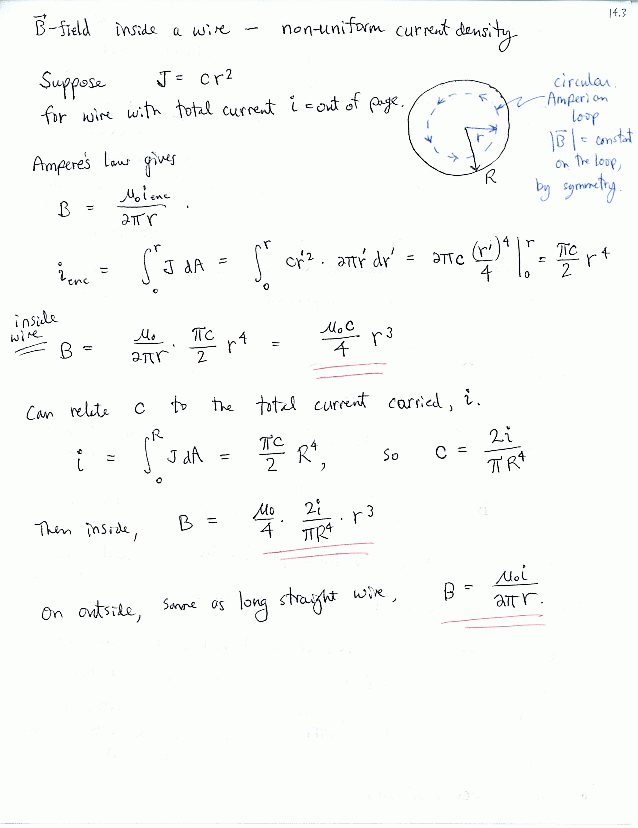 14.3
B⃗-field inside a wire – non-uniform current density
Suppose J = cr²
for wire with total current i = out of page.
circular
Amperian
loop
|B⃗| = constat
on the loop,
by symmetry.
r
R
Ampere's Law gives
B = μ₀i_enc / 2πr .
i_enc = ∫₀^r J dA = ∫₀^r cr'² · 2πr' dr' = 2πc (r')⁴/4 |₀^r = πc/2 r⁴
inside
wire
B = μ₀/2πr · πc/2 r⁴ = μ₀c/4 r³
Can relate c to the total current carried, i.
i = ∫₀^R J dA = πc/2 R⁴, so c = 2i/πR⁴
Then inside, B = μ₀/4 · 2i/πR⁴ · r³
On outside, same as long straight wire, B = μ₀i/2πr.